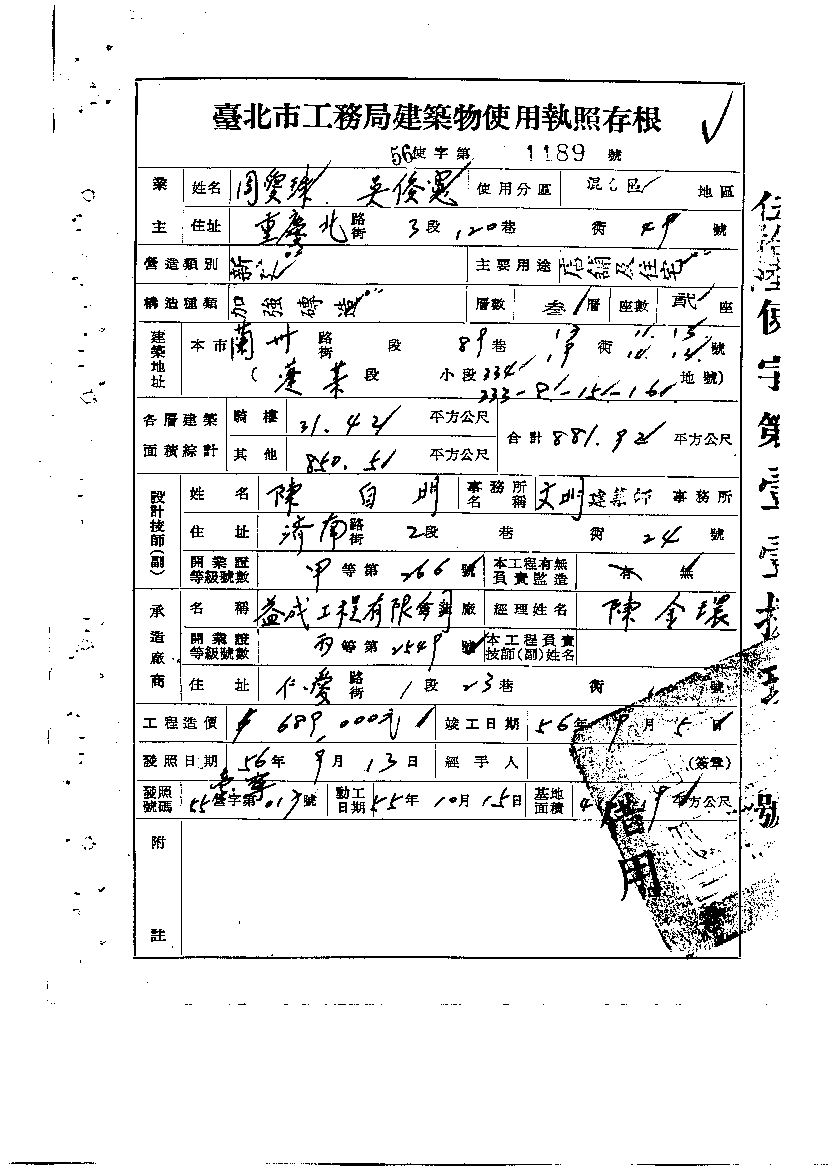 臺北市工務局建築物使用執照存根
56使字第 1189 號
業主 姓名 周愛珠 吳俊 使用分區 混合區 地區
住址 重慶北路街 3段 120巷 街 49 號
營造類別 新 主要用途 店舖及住宅
構造種類 加強磚造 層數 叁層 座數 貳座
建築地址 本市蘭州路街 段 89巷 街 號
(蓬萊段 小段 334 地號)
各層建築面積綜計 騎樓 31.42 平方公尺 合計 881.92 平方公尺
其他 850.51 平方公尺
設計技師(副) 姓名 陳自明 事務所名稱 文明建築師事務所
住址 濟南路街 2段 巷 街 24 號
開業證等級號數 甲等第 266 號 本工程有無負責監造 有 無
承造廠商 名稱 益成工程有限 廠 經理姓名 陳金環
開業證等級號數 丙等第 2549 號 本工程負責技師(副)姓名
住址 仁愛路街 1段 23巷 街 號
工程造價 689,000元 竣工日期 56年 9月 5日
發照日期 56年 9月 13日 經手人 (簽章)
發照號碼 55營字第 013號 動工日期 55年 10月 15日 基地面積 平方公尺
附註
借用
使字第壹壹 號